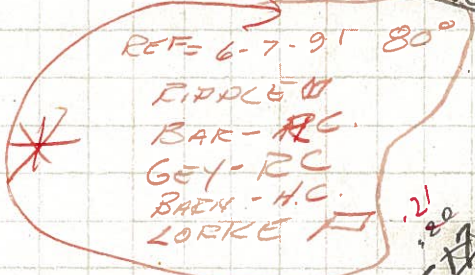 REF= 6-7-91 80°
RIDDLE
BAR - RC.
GEY - RC
BARN - H.C.
LORKE
.21
.20